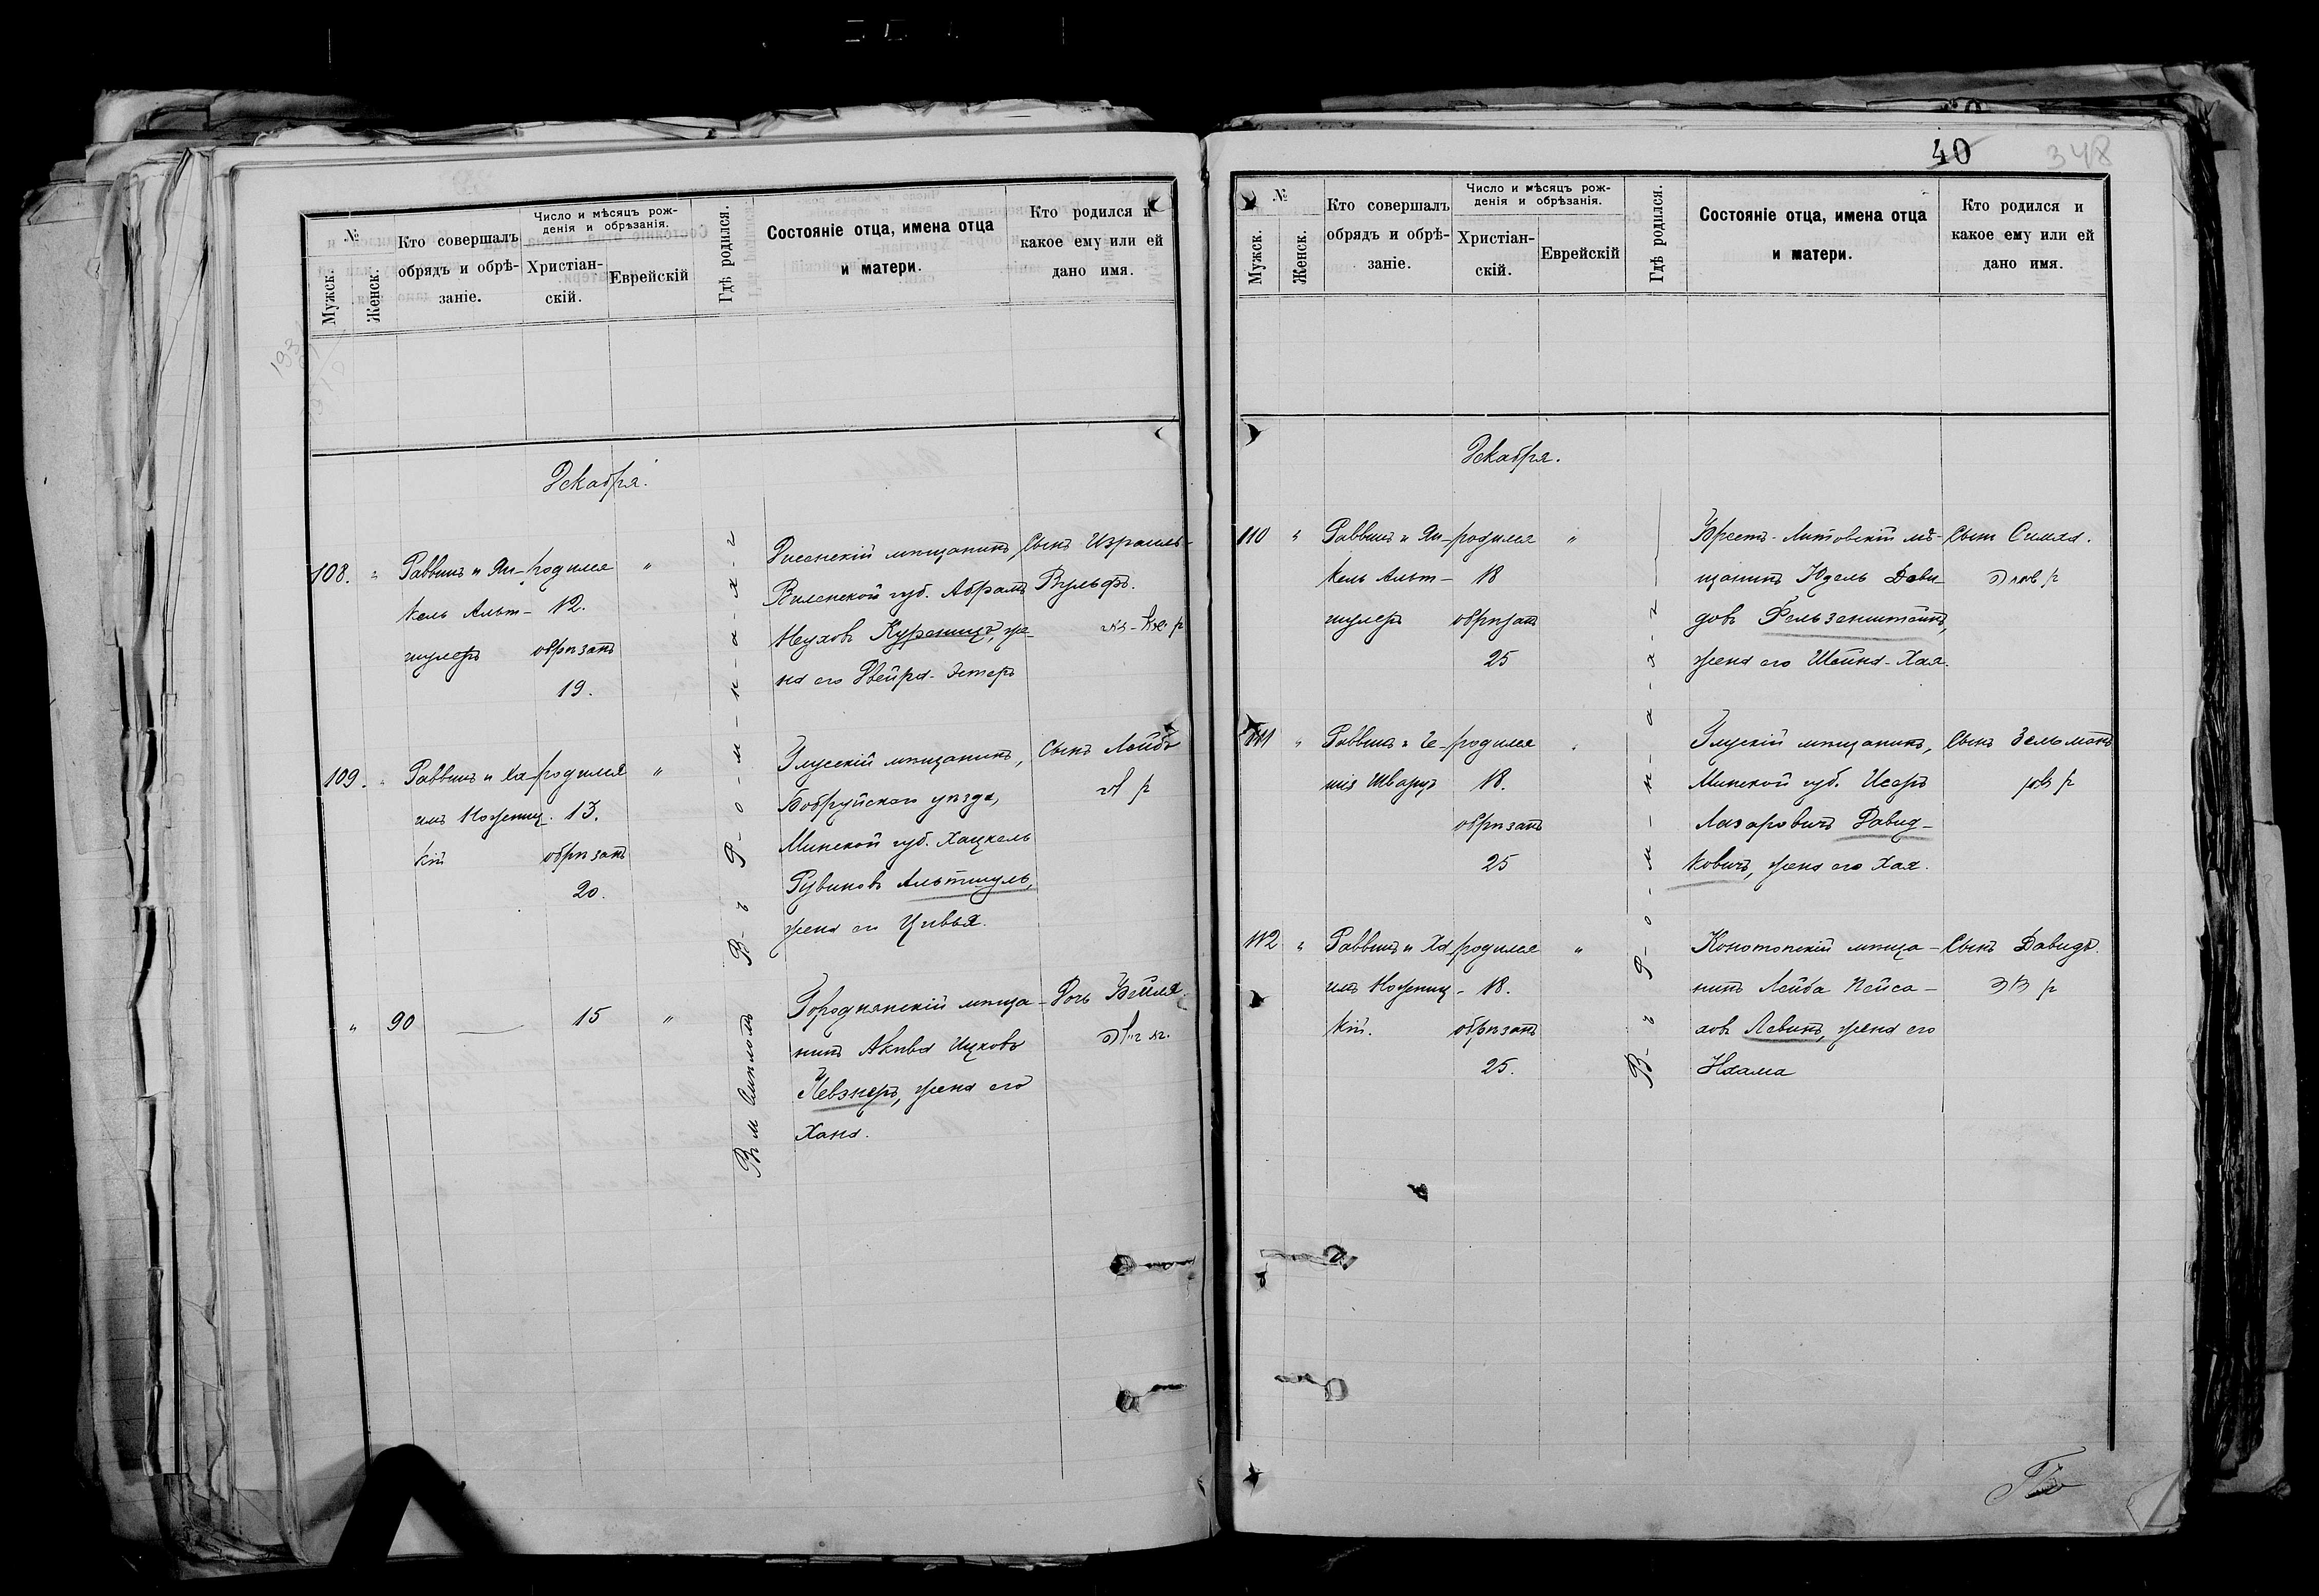 №
Мужск.
Женск.
Кто совершалъ
обрядъ и обрѣ-
заніе.
Число и мѣсяцъ рож-
денія и обрѣзанія.
Христіан-
скій.
Еврейскій
Гдѣ родился.
Состояніе отца, имена отца
и матери.
Кто родился и
какое ему или ей
дано имя.
Декабря.
108.
Раввинъ и Ян-
кель Альт-
шулеръ
родился
12.
обрѣзанъ
19.
"
Виленской губ. Абрамъ
Нуховъ Куреницъ, же-
на его Двейра-Эстеръ
Сынъ Израиль-
Вульфъ.
109.
Раввинъ и Ха-
имъ Ножениц-
кій
родился
13.
обрѣзанъ
20.
"
Глусскій мѣщанинъ,
Бобруйскаго уѣзда,
Минской губ. Хацкель
Рувиновъ Альтшуль,
жена его Цивья.
Сынъ Лейба
В-ъ Р-о-м-н-а-х-ъ
"
90
15
"
Городнянскій мѣща-
нинъ Акива Ицковъ
Левзнеръ, жена его
Хана.
Дочь Бейля.
40
348
№
Мужск.
Женск.
Кто совершалъ
обрядъ и обрѣ-
заніе.
Число и мѣсяцъ рож-
денія и обрѣзанія.
Христіан-
скій.
Еврейскій
Гдѣ родился.
Состояніе отца, имена отца
и матери.
Кто родился и
какое ему или ей
дано имя.
Декабря.
110
"
Раввинъ и Ян-
кель Альт-
шулеръ
родился
18
обрѣзанъ
25
"
Брестъ-Литовскій мѣ-
щанинъ Юдель Дави-
довъ Фельзенштейнъ,
жена его Шейна-Хая.
Сынъ Симха.
111
"
Раввинъ и
Шварцъ
родился
18.
обрѣзанъ
25
Глускій мѣщанинъ,
Минской губ. Исеръ
Лазаровичъ Давид-
ковичъ, жена его Хая.
Сынъ Зельманъ
112
"
Раввинъ и Ха-
имъ Ножениц-
кій.
родился
18.
обрѣзанъ
25.
"
В-ъ Р-о-м-н-а-х-ъ
Конотопскій мѣща-
нинъ Лейба Пейса-
ховъ Левинъ, жена его
Нхама
Сынъ Давидъ.